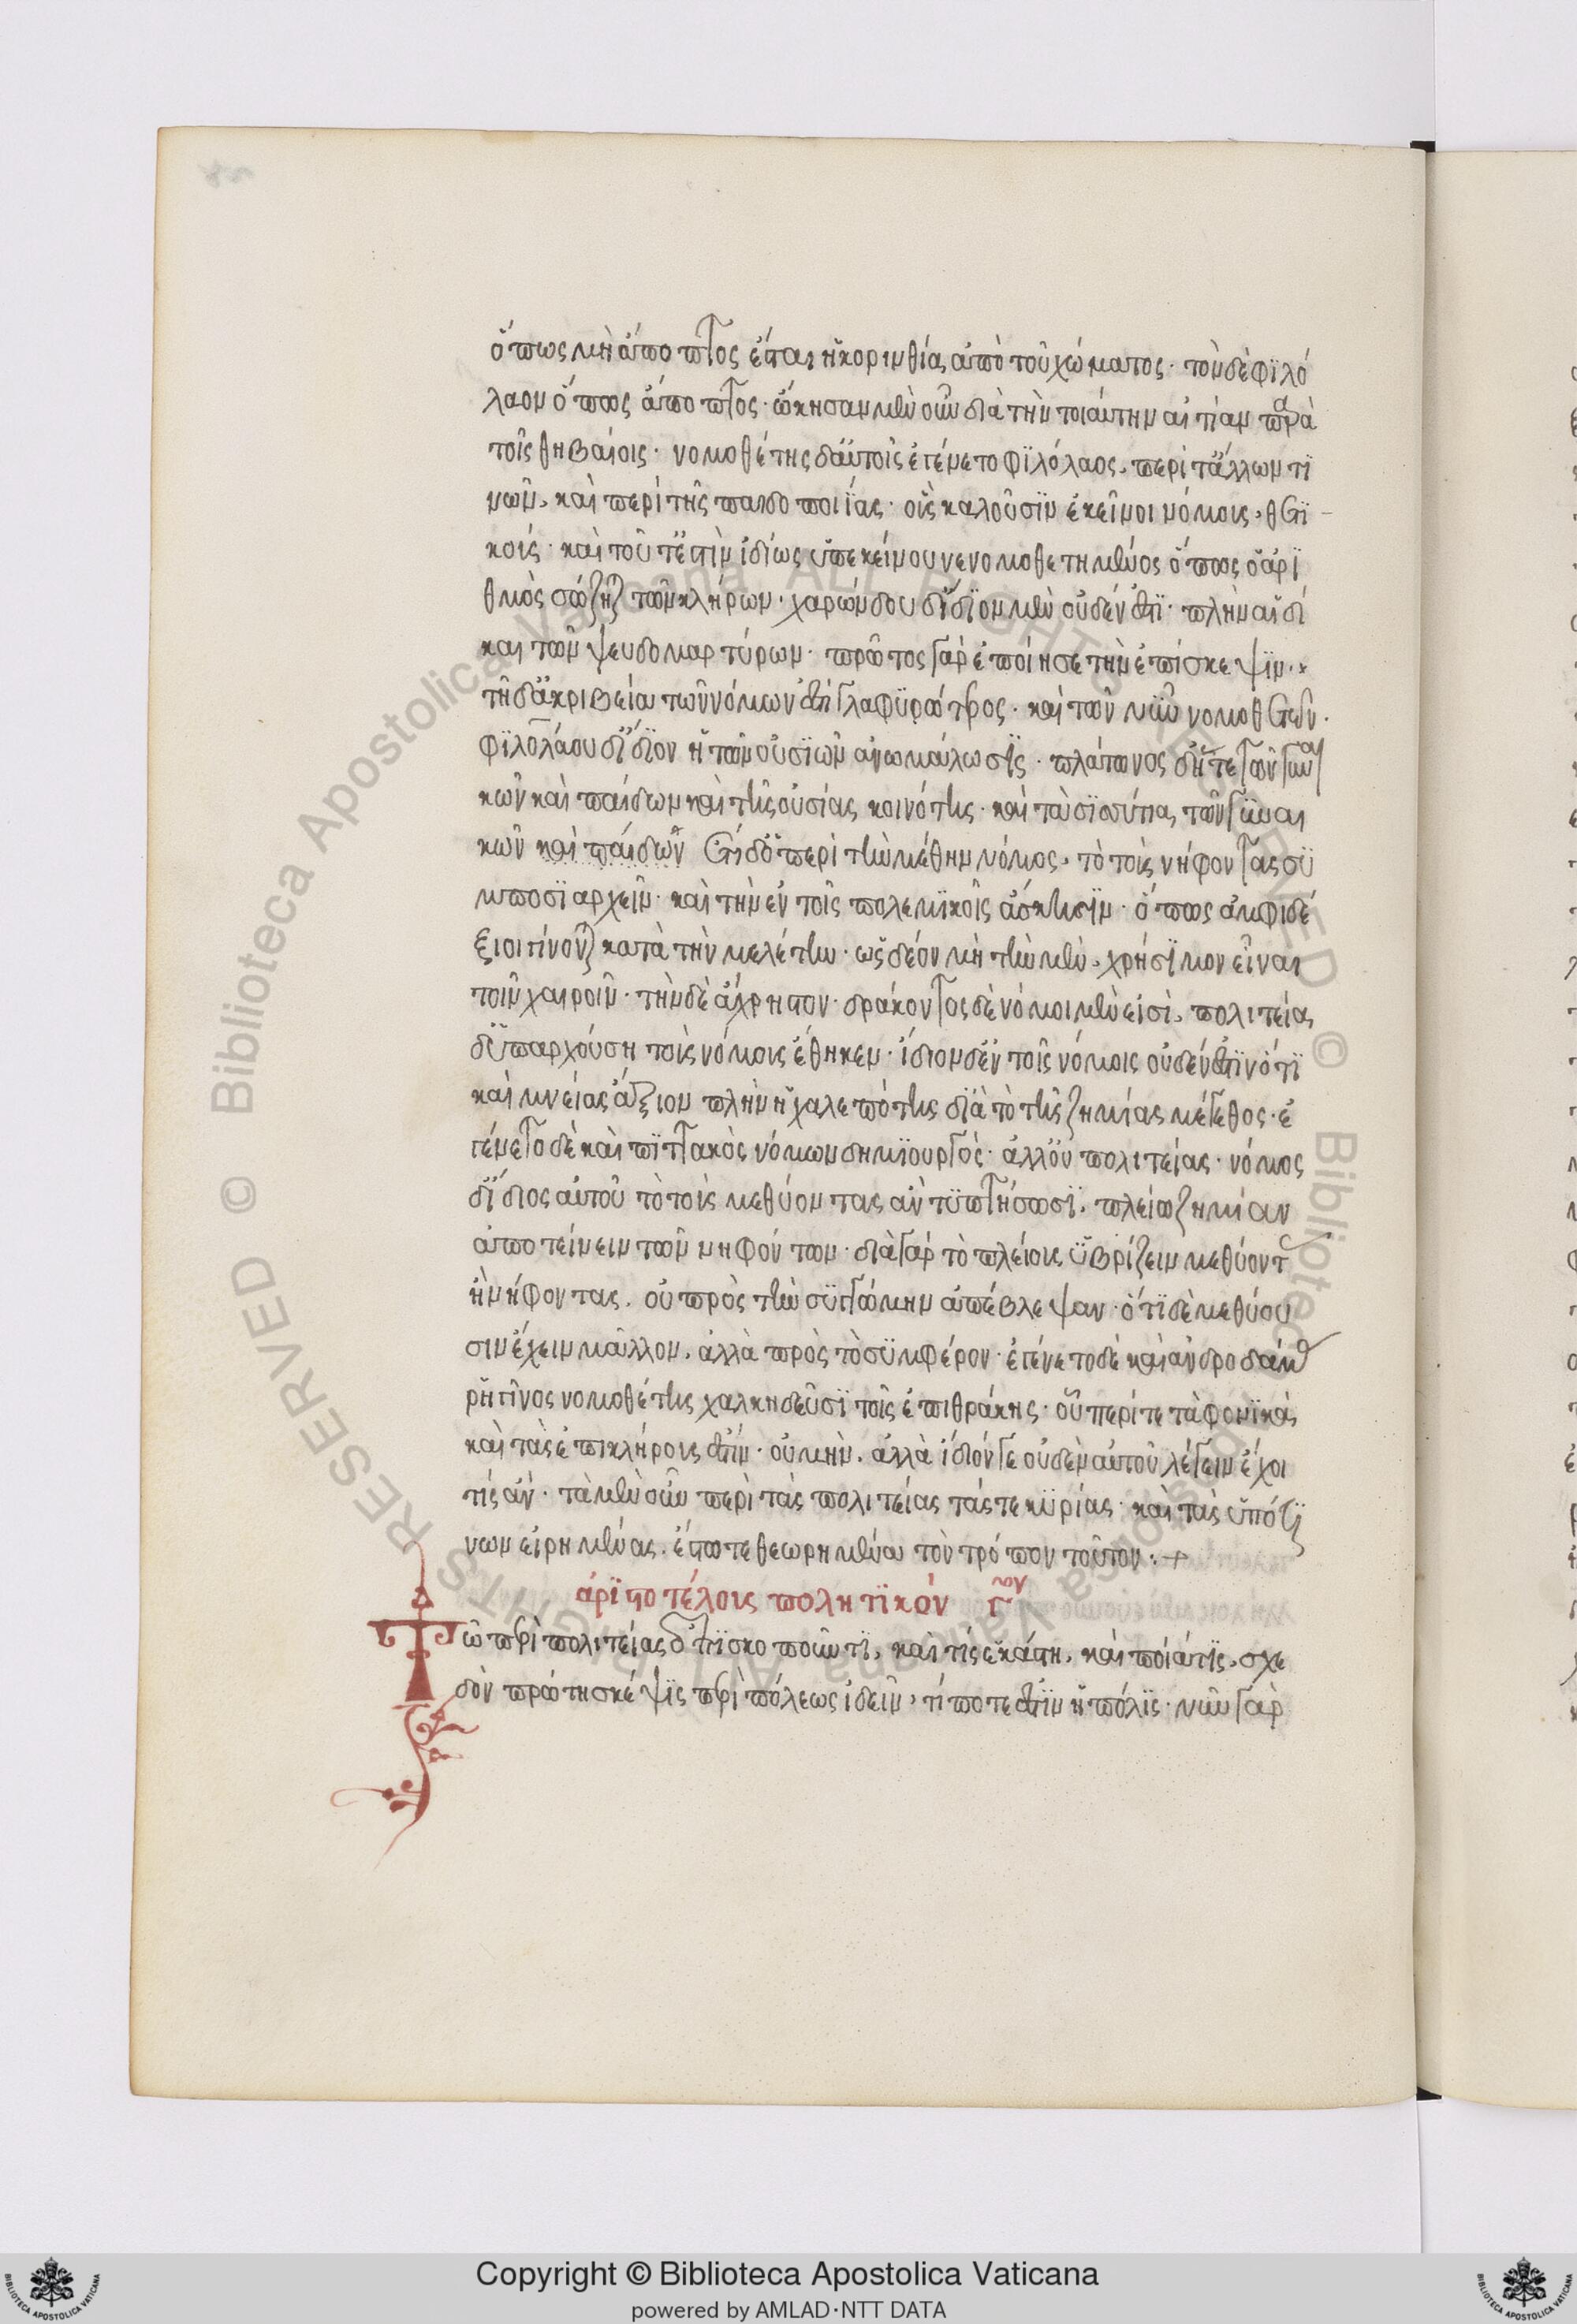 ὅπως μὴ ἄποπτος ἔσται ἡ κορινθία ἀπὸ τοῦ χώματος · τὸν δὲ φϊλό
λαον ὅπως ἄποπτος · ᾤκησαν μὲν οὖν διὰ τὴν τοιαύτην αἰτίαν παρὰ
τοῖς θηβαίοις · νομοθέτης δ' αὐτοῖς ἐγένετο φϊλόλαος, περὶ τ' ἄλλων τϊ
νῶν, καὶ περὶ τῆς παιδοποιΐας · οὓς καλοῦσϊν ἐκεῖνοι νόμους, θετϊ
κούς · καὶ τοῦτ' ἐστὶν ἰδίως ὑπ' ἐκείνου νενομοθετημένος ὅπως ὁ ἀρϊ
θμὸς σώζηται τῶν κλήρων · χαρώνδου δ' ἴδϊον μὲν οὐδέν ἐστϊ · πλὴν αἱ δί
και τῶν ψευδομαρτύρων · πρῶτος γὰρ ἐποίησε τὴν ἐπίσκεψϊν ·
τῆ δ' ἀκριβεία τῶν νόμων ἐστὶ γλαφϋρώτερος · καὶ τῶν νῦν νομοθετῶν ·
φϊλολάου δ' ἴδϊον ἡ τῶν οὐσϊῶν ἀνωμάλωσϊς · πλάτωνος δ' ἥ τε τῶν γυναι
κῶν καὶ παίδων καὶ τῆς οὐσίας κοινότης · καὶ τὰ σϊσσύτια τῶν γϋναι
κῶν καὶ παίδων ἔτι δ' ὁ περὶ τὴν μέθην νόμος, τὸ τοὺς νήφοντας σϋ
μποσϊαρχεῖν · καὶ τὴν ἐν τοῖς πολεμϊκοῖς ἄσκησϊν · ὅπως ἀμφιδέ
ξιοι γίνονται κατὰ τὴν μελέτην · ὡς δέον μὴ τὴν μὲν, χρήσϊμον εἶναι
τοῖν χαιροῖν · τὴν δὲ ἄχρηστον · δράκοντος δὲ νόμοι μὲν εἰσὶ, πολιτεία
δ' ὑπαρχούση τοὺς νόμους ἔθηκεν · ἴδιον δ' ἐν τοῖς νόμοις οὐδέν ἐστϊν ὅτϊ
καὶ μνείας ἄξιον πλὴν ἡ χαλεπότης δϊὰ τὸ τῆς ζημίας μέγεθος · ἐ
γένετο δὲ καὶ πϊττακὸς νόμων δημϊουργός · ἀλλ' οὐ πολιτείας · νόμος
δ' ἴδιος αὐτοῦ τὸ τοὺς μεθύοντας ἂν τϋπτήσωσϊ, πλείω ζημίαν
ἀποτείνειν τῶν νηφόντων · διὰ γὰρ τὸ πλείους ὑβρίζειν μεθύοντας
ἢ νήφοντας, οὐ πρὸς τὴν σϋγγνώμην ἀπέβλεψαν · ὅτϊ δὲ μεθύου
σιν ἔχειν μᾶλλον, ἀλλὰ πρὸς τὸ σϋμφέρον · ἐγένετο δὲ καὶ ἀνδροδάμας
ῥηγῖνος νομοθέτης χαλκηδεῦσϊ τοῖς ἐπι θράκης · οὗ περί τε τὰ φονϊκὰ
καὶ τὰς ἐπικλήρους ἐστίν · οὐ μὴν, ἀλλὰ ἴδιόν γε οὐδὲν αὐτοῦ λέγειν ἔχοι
τίς ἄν · τὰ μὲν οὖν περὶ τὰς πολιτείας τάς τε κϋρίας · καὶ τὰς ὑπό τϊ
νων εἰρημένας, ἔστω τεθεωρημένα τὸν τρόπον τοῦτον · +
ἀρϊστοτέλους πολητϊκόν γον
Τῶ περὶ πολιτείας ἐπϊσκοποῦντϊ, καὶ τίς ἑκάστη, καὶ ποία τϊς, σχε
δὸν πρώτη σκέψϊς περὶ πόλεως ἰδεῖν, τί ποτε ἐστϊν ἡ πόλϊς · νῦν γὰρ
Copyright © Biblioteca Apostolica Vaticana
powered by AMLAD·NTT DATA